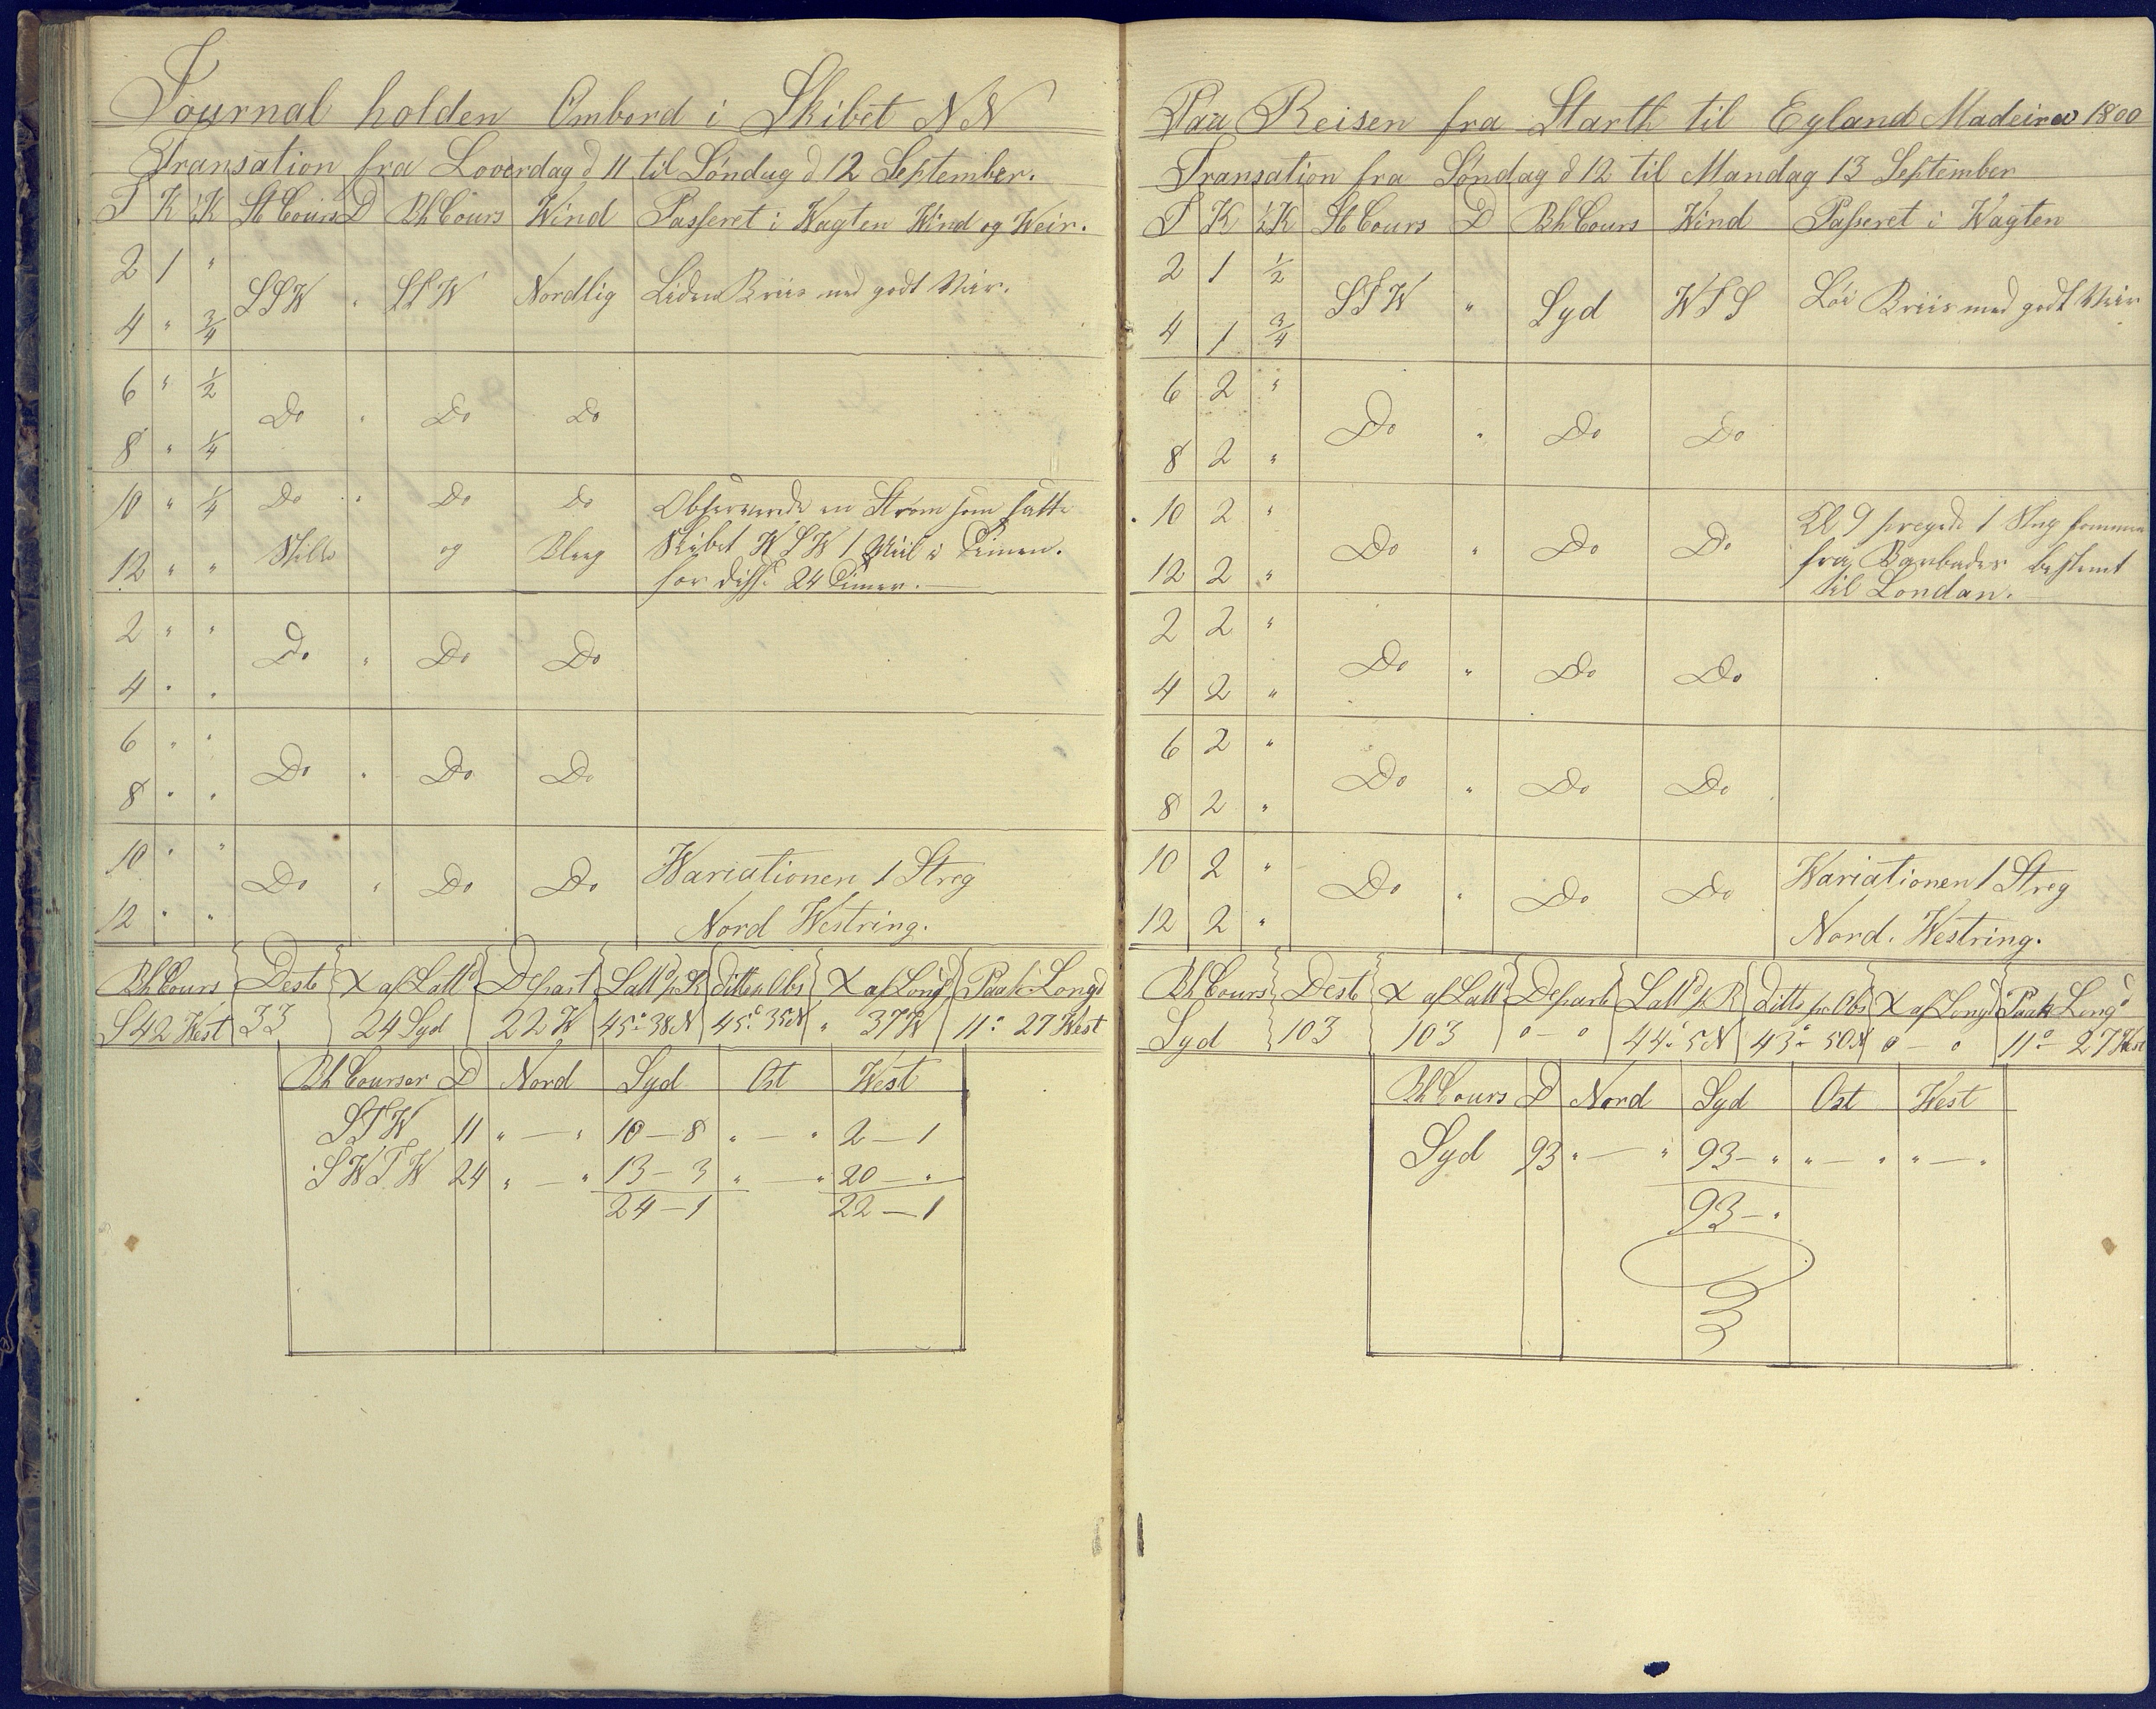 Journal holden Ombord i Skibet NN
Transation fra Loverdag d 11 til Søndag d 12 September.
T K ½K St Cours D Bh Cours Wind Passeret i Wagten Wind og Weir.
2 1 "
SSW " SSW Nordlig Liden Briis med godt Veir.
4 " 3/4
6 " 1/2
Do " Do Do
8 " 1/4
10 " 1/4 Do " Do Do Observerede en Strøm som satte
Skibet WSW 1 Miil i Timen.
12 " " Stille og
for disse 24 Timer.
2 " "
Do " Do Do
4 " "
6 " "
Do " Do Do
8 " "
10 " "
Do " Do Do Wariationen 1 Streg
12 " " Nord Westring.
Bh Cours Dest X af Latt Depart Latt pr R Ditto Obs X af Longd Paak Longd
S 42 West 33 24 Syd 22 W 45° 38 N 45° 35 N " 37 W 11° 27 West
Bh Courser D Nord Syd Ost West
STW 11 " — " 10 — 8 " — " 2 — 1
SWTW 24 " — " 13 — 3 " — " 20 — "
24 — 1 22 — 1
Paa Reisen fra Starth til Eyland Madeira 1800
Transation fra Søndag d 12 til Mandag 13 September
T K ½K St Cours D Bh Cours Wind Passeret i Wagten
2 1 1/2
STW " Syd WTS Løi Briis med godt Veir
4 1 3/4
6 2 "
Do " Do Do
8 2 "
10 2 " Kl 9 1
Do " Do Do fra Barbades bestemt
12 2 " til Londan.
2 2 "
Do " Do Do
4 2 "
6 2 "
Do " Do Do
8 2 "
10 2 "
Do " Do Do Wariationen 1 Streg
12 2 " Nord. Westring.
Bh Cours Dest X af Latt Depart Latt pr R Ditto pr Obs X af Longd Paak Longd
Syd 103 103 0 — 0 44° 5 N 43° 50 N 0 — 0 11° — 27 West
Bh Cours D Nord Syd Ost West
Syd 93 " — " 93 — " " — " " — "
93 — "